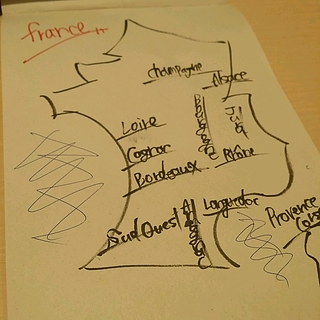 france
champagne
Alsace
Loire
Jura
Cognac
Bordeaux
Rhône
Languedoc
Sud Ouest
Provence